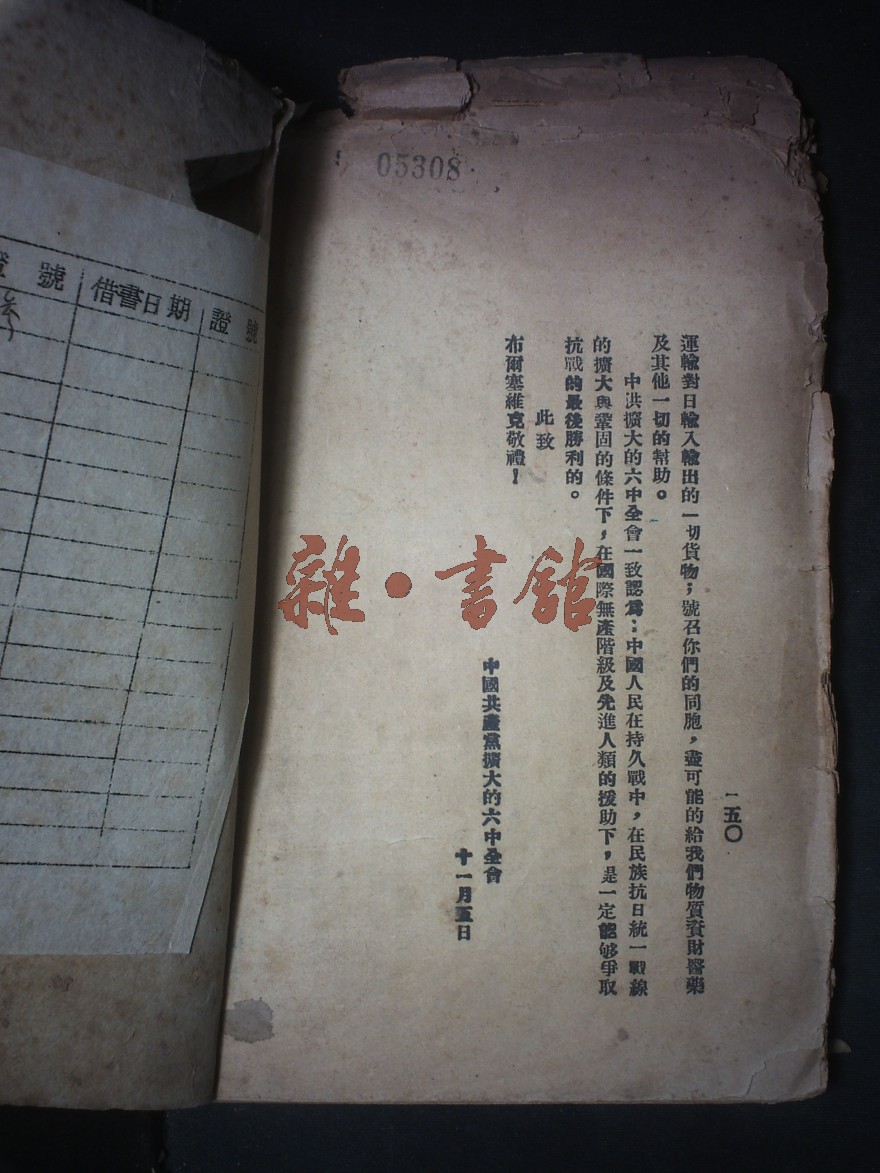 05308
一五〇
運輸對日輸入輸出的一切貨物；號召你們的同胞，盡可能的給我們物質資財醫藥
及其他一切的幫助。
中洪擴大的六中全會一致認爲：中國人民在持久戰中，在民族抗日統一戰線
的擴大與鞏固的條件下，在國際無產階級及先進人類的援助下，是一定能够爭取
抗戰的最後勝利的。
此致
布爾塞維克敬禮！
中國共產黨擴大的六中全會
十一月五日
雜·書館
證號
借書日期
證號